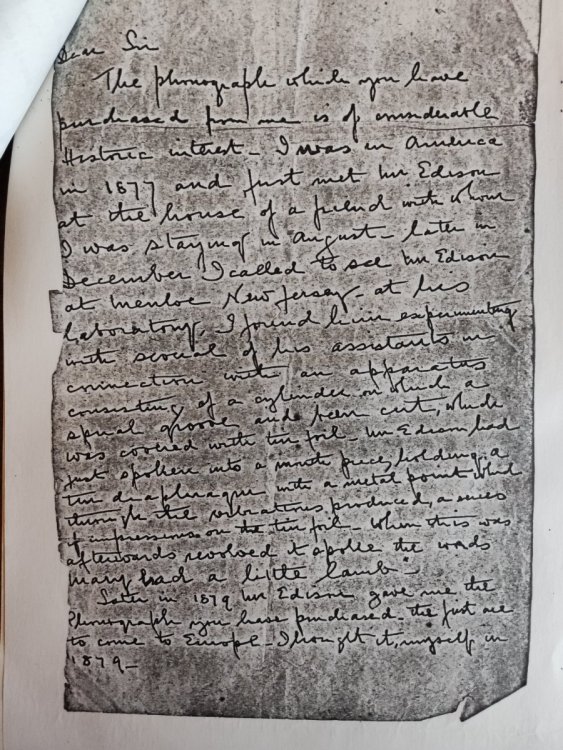 Dear Sir
The phonograph which you have
purchased from me is of considerable
Historic interest - I was in America
in 1877 and first met Mr Edison
at the house of a friend with whom
I was staying in August - later in
December I called to see Mr Edison
at Menloe New Jersey - at his
Laboratory, I found him experimenting
with several of his assistants in
connection with an apparatus
consisting of a cylinder on which a
spiral groove had been cut, which
was covered with tin foil - Mr Edison had
just spoken into a mouth piece, holding a
tin diaphragm with a metal point which
through the vibrations produced, a series
of impressions on the tin foil - When this was
afterwards revolved it spoke the words
"Mary had a little lamb"
Later in 1879 Mr Edison gave me the
Phonograph you have purchased - the first one
to come to Europe - I brought it, myself in
1879 -